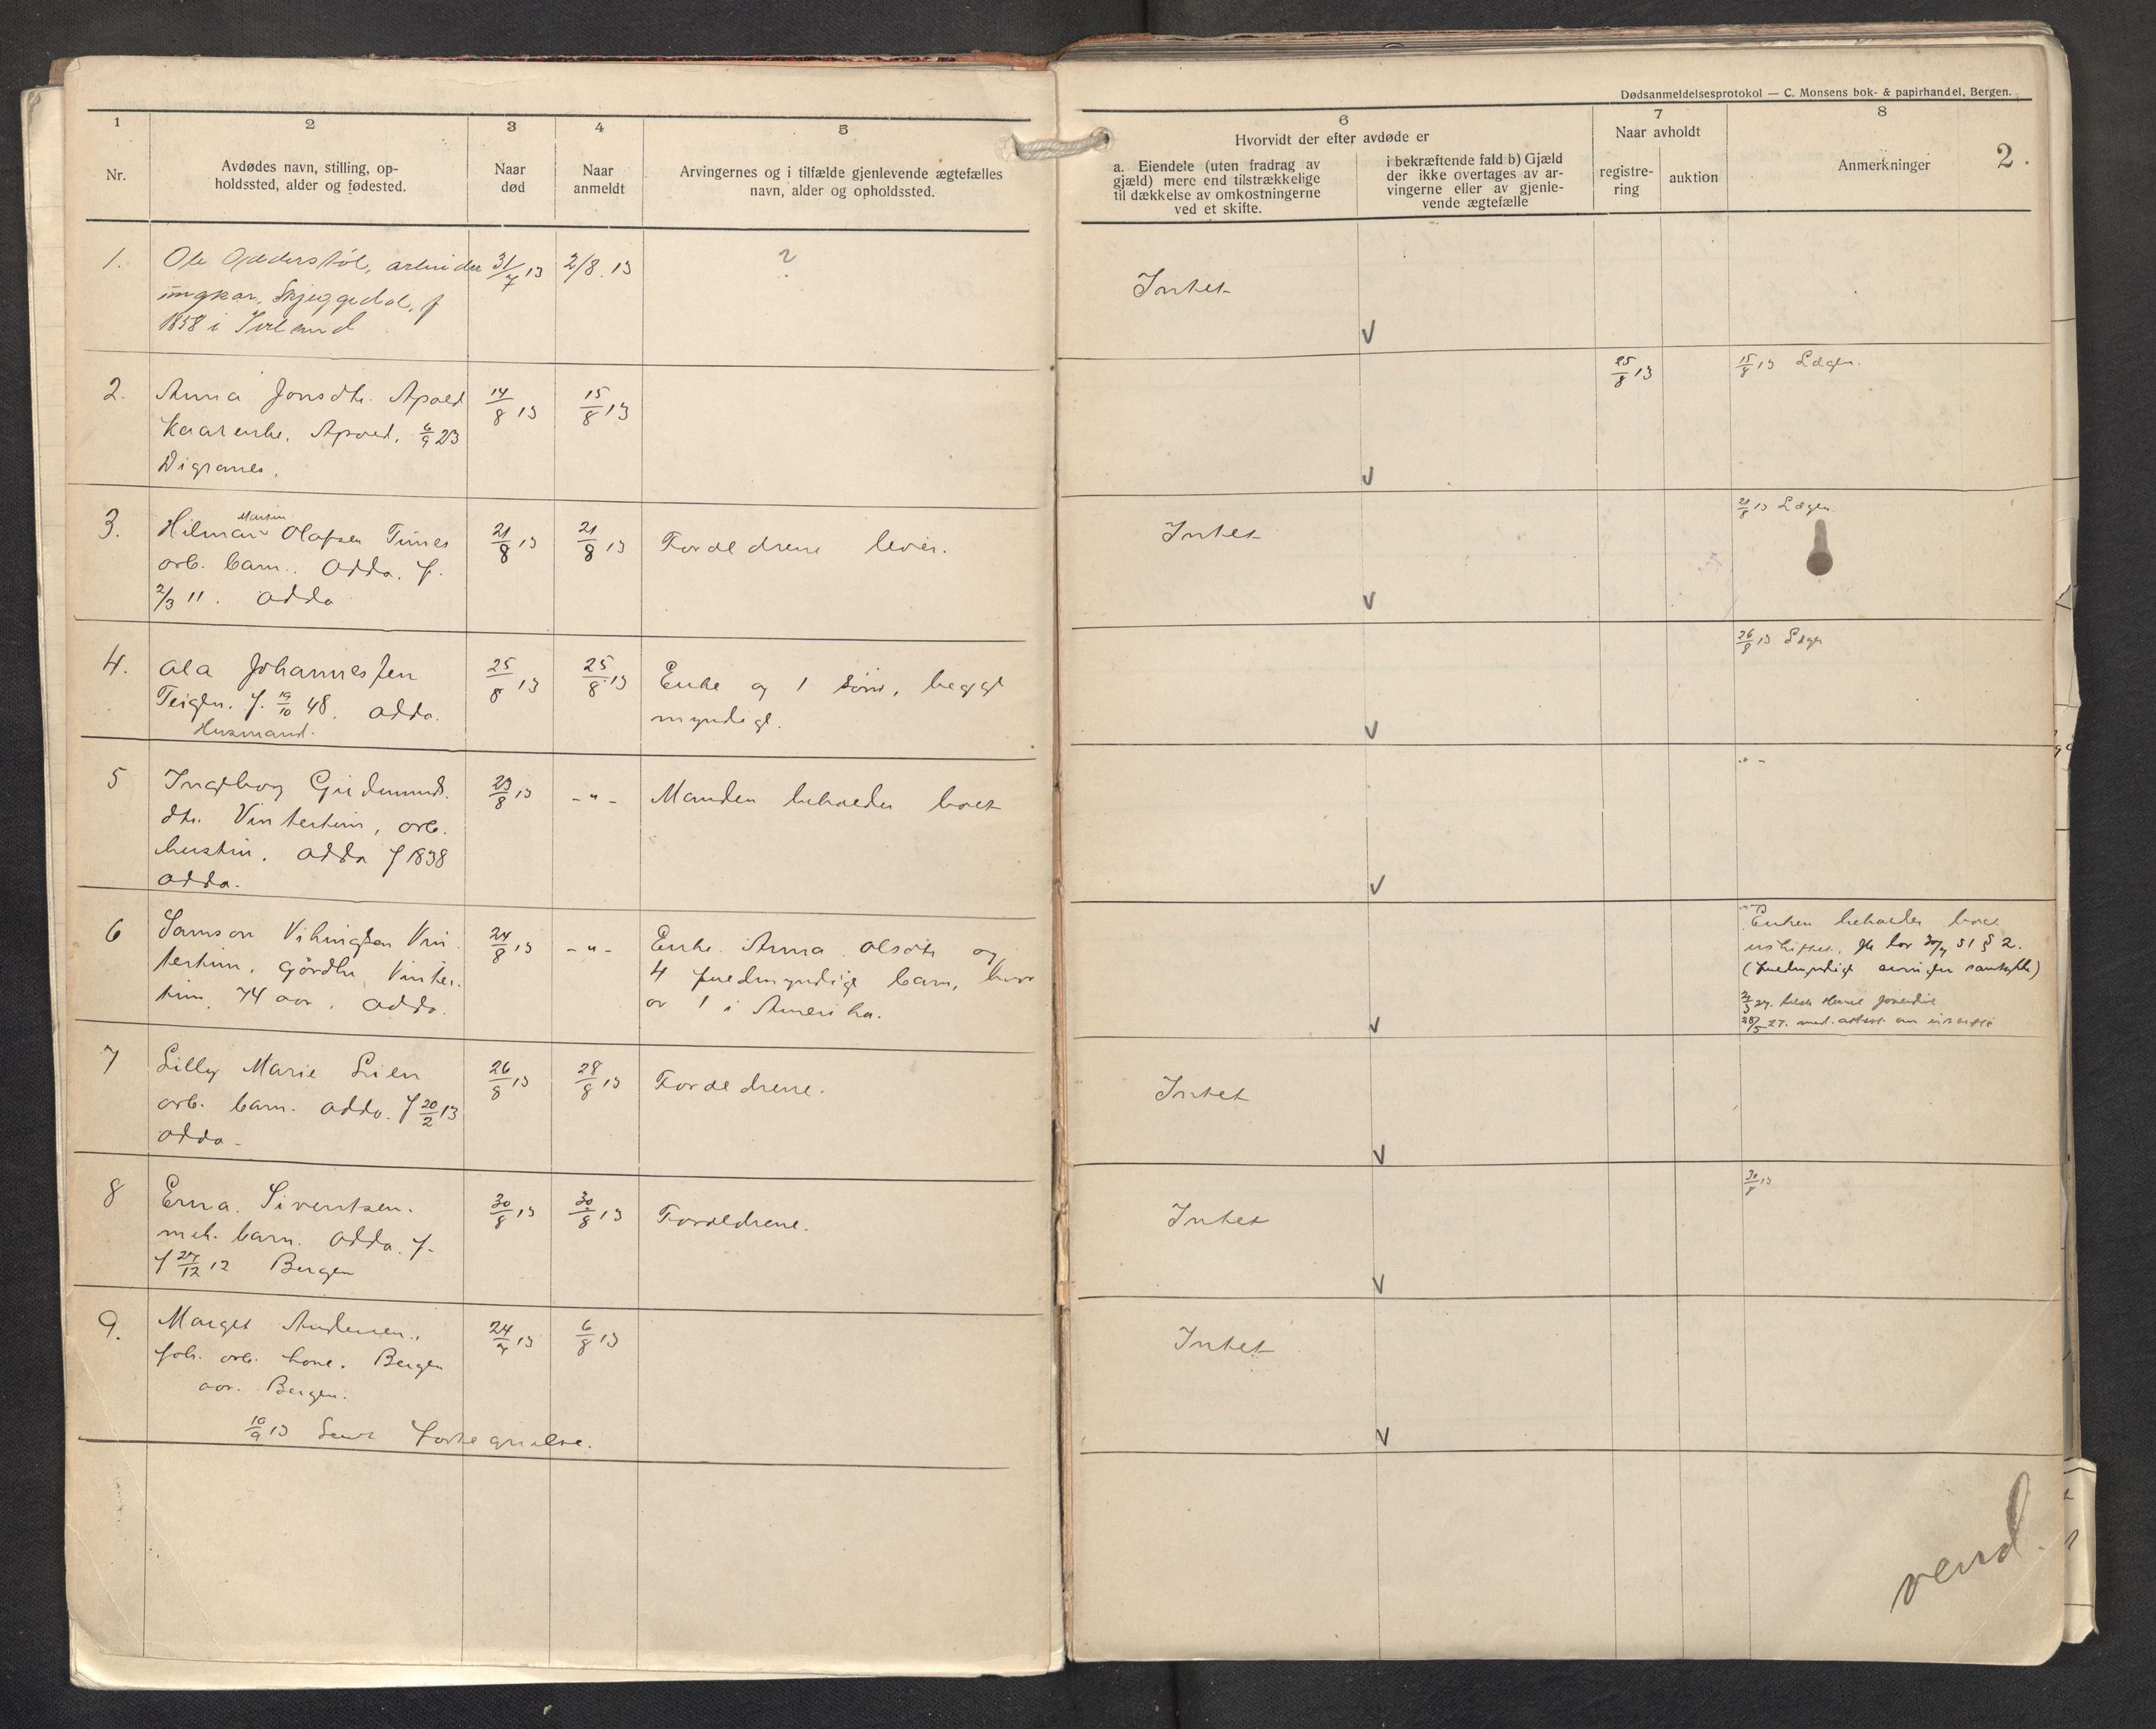 Dødsanmeldelsesprotokol — C. Monsens bok- & papirhandel, Bergen.
2.
1
Nr.
2
Avdødes navn, stilling, op-
holdssted, alder og fødested.
3
Naar
død
4
Naar
anmeldt
5
Arvingernes og i tilfælde gjenlevende ægtefælles
navn, alder og opholdssted.
6
Hvorvidt der efter avdøde er
a. Eiendele (uten fradrag av
gjæld) mere end tilstrækkelige
til dækkelse av omkostningerne
ved et skifte.
i bekræftende fald b) Gjæld
der ikke overtages av ar-
vingerne eller av gjenle-
vende ægtefælle
7
Naar avholdt
registre-
ring
auktion
8
Anmerkninger
1.
Ole arbeider
ungkar, Skjeggedal, f
1858 i
31/7 13
2/8. 13
?
Intet
V
2.
Anna Jonsdtr. Apold
kaarenke. Apold. 6/9 23
Digranes.
14/8 13
15/8 13
V
25/8 13
15/8 13 Lægen.
3.
Martin
Hilmar Olafsen Tunes
arb. barn. Odda. f.
2/3 11. Odda
21/8 13
21/8 13
Forældrene lever.
Intet
V
21/8 13 Lægen.
4.
Ola Johannessen
Teigen. f. 19/10 48. Odda.
Husmand.
25/8 13
25/8 13
Enke og 1 sønn, begge
myndige.
V
26/8 13 Lægen
5
Ingeborg Gudmunds.
dtr. Vintertun, arb.
hustru. Odda f 1838
Odda.
23/8 13
- " -
Manden beholder boet
V
" -
6
Samson Vikingsen Vin
tertun, gårdbr. Vinter.
tun. 74 aar. Odda.
24/8 13
- " -
Enke Anna Olsdtr og
4 fuldmyndige barn, hvor
av 1 i Amerika.
V
Enken beholder boet
uskiftet. jfr lov 30/7 51 § 2.
(fuldmyndige arvinger samtykke)
27.
28/5 27. med. attest. om uskifte
7
Lilly Marie Lien
arb. barn. Odda. f 20/2 13
Odda -
26/8 13
28/8 13
Forældrene.
Intet
V
8
Erna Sivertsen.
mek. barn. Odda. f.
f 27/12 12 Bergen
30/8 13
30/8 13
Forældrene.
Intet
V
30/8 13
9.
Marget Andersen.,
fch. arb. kone. Bergen
aar. Bergen.
10/9 13 Sent fortegnelse.
24/7 13
6/8 13
Intet
V
vend.